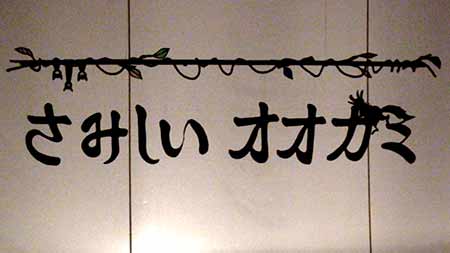 さみしい オオガミ